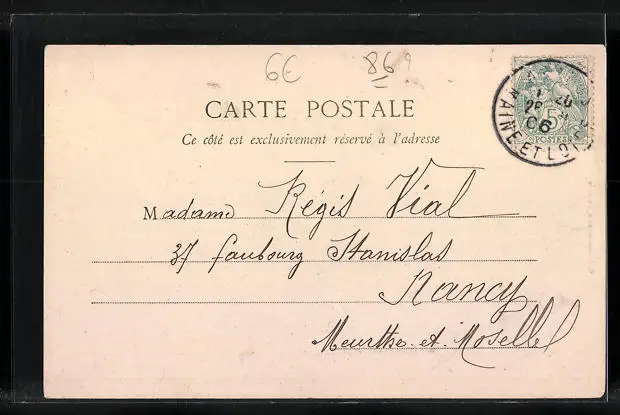 6€ 86
CARTE POSTALE
Ce côté est exclusivement réservé à l'adresse
Madame Régis Vial
37 faubourg Stanislas
Nancy
Meurthe-et-Moselle
5
POSTES
MAINE ET LOIRE
06